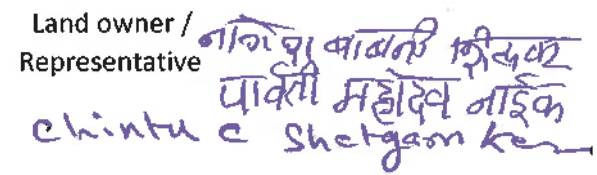 Land owner /
Representative नागेश बाबनी
पार्वती महादेव नाईक
Chintu C Shetgaonkar